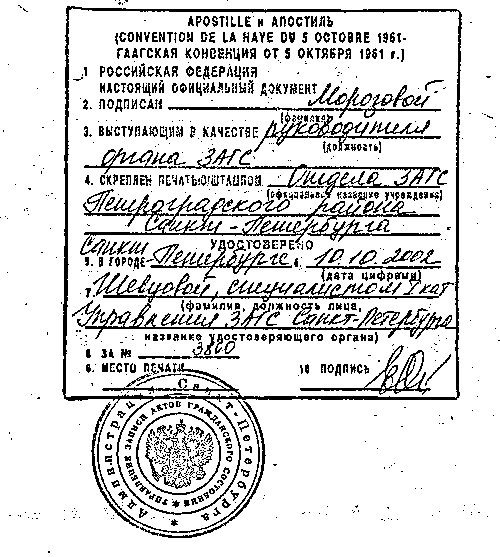 APOSTILLE и АПОСТИЛЬ
(CONVENTION DE LA HAYE DU 5 OCTOBRE 1961-
ГААГСКАЯ КОНВЕНЦИЯ ОТ 5 ОКТЯБРЯ 1961 г.)
1 РОССИЙСКАЯ ФЕДЕРАЦИЯ
НАСТОЯЩИЙ ОФИЦИАЛЬНЫЙ ДОКУМЕНТ
2. ПОДПИСАН Морозовой
(фамилия)
3. ВЫСТУПАЮЩИМ В КАЧЕСТВЕ руководителя
(должность)
органа ЗАГС
4. СКРЕПЛЕН ПЕЧАТЬЮ/ШТАМПОМ Отдела ЗАГС
(официальное название учреждения)
Петроградского района
Санкт-Петербурга
УДОСТОВЕРЕНО
Санкт
5. В ГОРОДЕ Петербурге 6. 10.10.2002
(дата цифрами)
7. Шевцовой, специалистом I кат
(фамилия, должность лица,
Управления ЗАГС Санкт-Петербурга
название удостоверяющего органа)
8 ЗА № 3860
9. МЕСТО ПЕЧАТИ 10 ПОДПИСЬ
Администрация Санкт-Петербурга
УПРАВЛЕНИЕ ЗАПИСИ АКТОВ ГРАЖДАНСКОГО СОСТОЯНИЯ